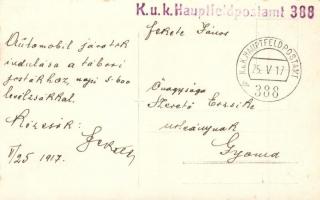 K.u.k. Hauptfeldpostamt 388
Automobil járatok
indulása a tábori
postákhoz, napi 5-600
levélzsákkal.
Kézcsók:
V/25 1917.
Fekete János
K.u.K. HAUPTFELDPOSTAMT
25. V. 17
388
Őnagysága
Szerető Erzsike
urleánynak
Gyoma